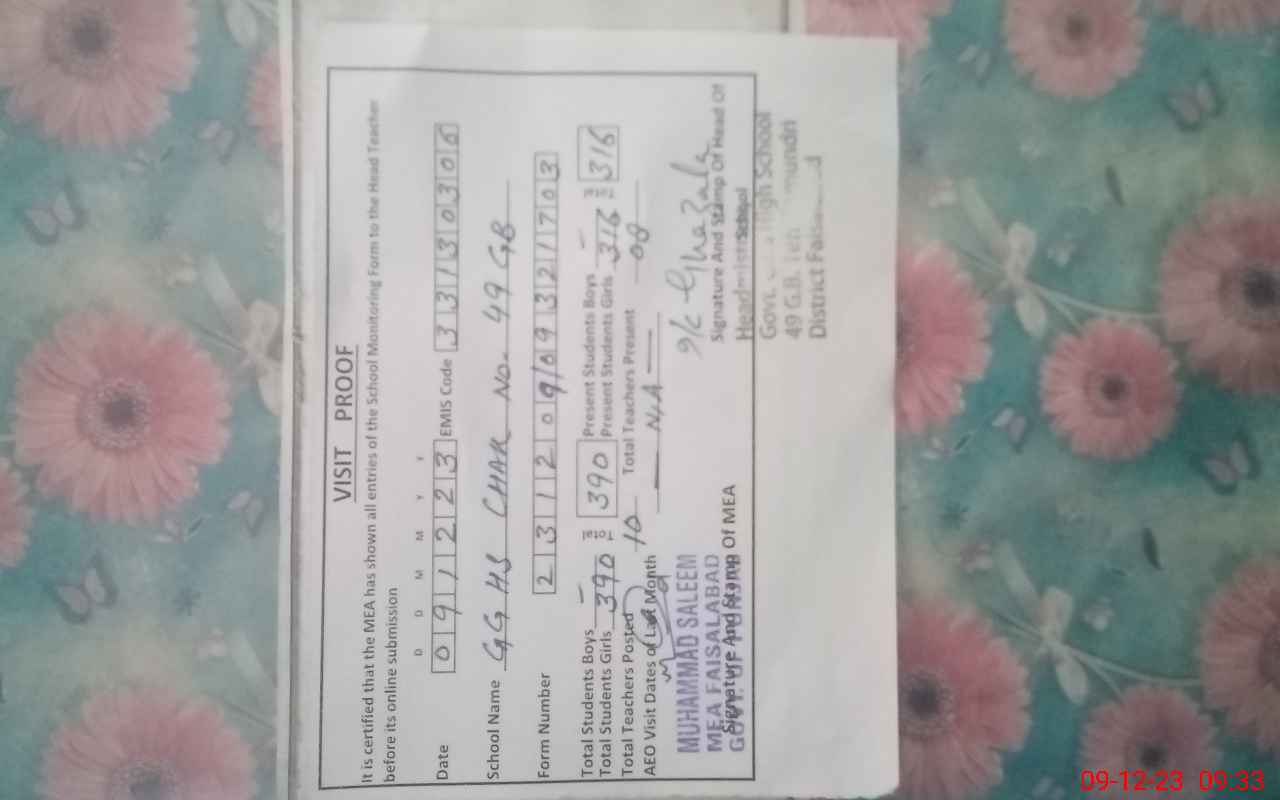 VISIT PROOF
It is certified that the MEA has shown all entries of the School Monitoring Form to the Head Teacher
before its online submission
D D M M Y Y
Date 091223 EMIS Code 33130306
School Name GG HS CHAK No. 49 GB
Form Number
Total Students Boys — Present Students Boys —
Total Students Girls 390 390 Present Students Girls 316 316
Total Teachers Posted 10 Total Teachers Present 08
AEO Visit Dates of Last Month N.A
MUHAMMAD SALEEM
MEA FAISALABAD
GOVT. OF PUNJAB
Signature And Stamp Of MEA
Signature And Stamp Of Head Of
School
Govt. High School
49 G.B.
District
09-12-23 09.33